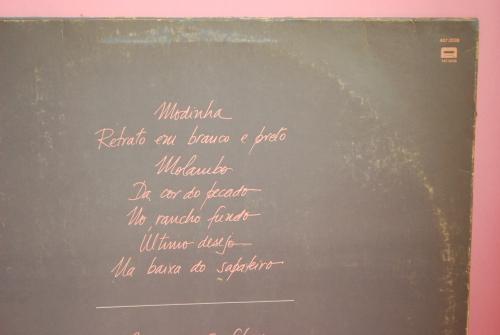 Modinha
Retrato em branco e preto
Molambo
Da cor do pecado
No rancho fundo
Último desejo
Na baixa do sapateiro